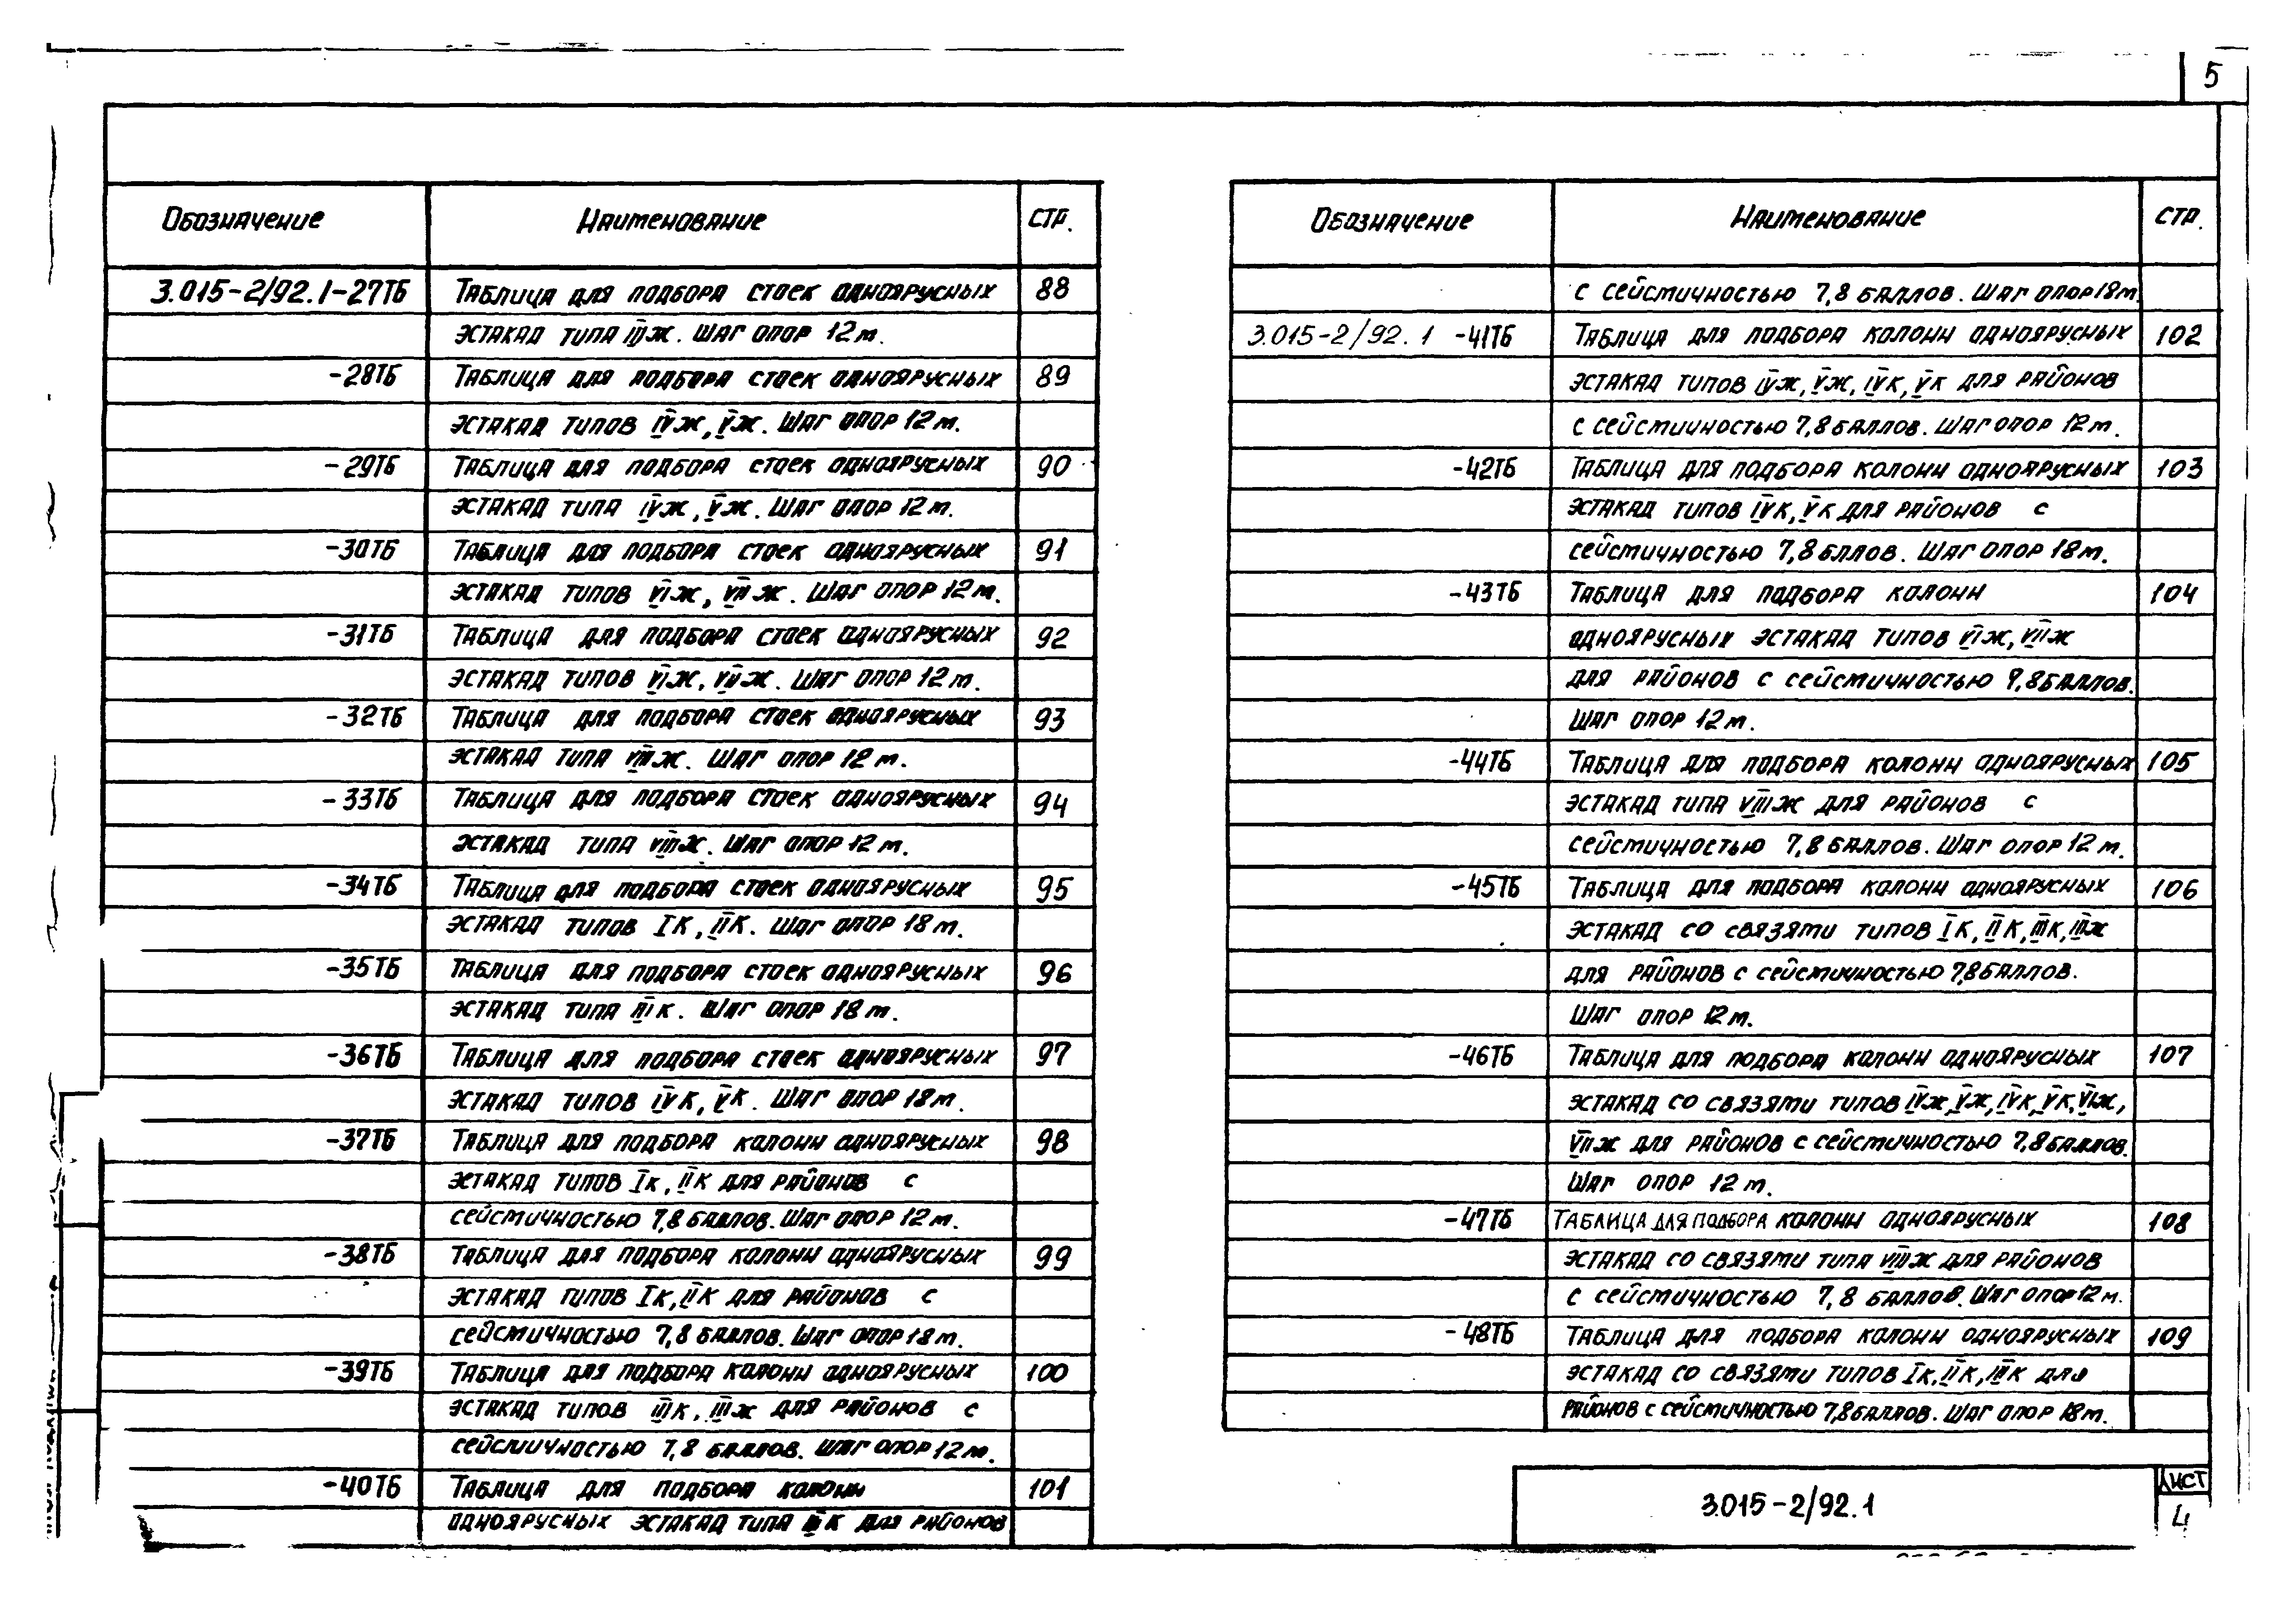 5
Обозначение Наименование СТР.
3.015-2/92.1-27ТБ Таблица для подбора стоек одноярусных 88
эстакад типа IIIж. Шаг опор 12 м.
-28ТБ Таблица для подбора стоек одноярусных 89
эстакад типов IVж, Vж. Шаг опор 12 м.
-29ТБ Таблица для подбора стоек одноярусных 90
эстакад типа IVж, Vж. Шаг опор 12 м.
-30ТБ Таблица для подбора стоек одноярусных 91
эстакад типов VIж, VIIж. Шаг опор 12 м.
-31ТБ Таблица для подбора стоек одноярусных 92
эстакад типов VIж, VIIж. Шаг опор 12 м.
-32ТБ Таблица для подбора стоек одноярусных 93
эстакад типа VIIIж. Шаг опор 12 м.
-33ТБ Таблица для подбора стоек одноярусных 94
эстакад типа VIIIж. Шаг опор 12 м.
-34ТБ Таблица для подбора стоек одноярусных 95
эстакад типов Iк, IIк. Шаг опор 18 м.
-35ТБ Таблица для подбора стоек одноярусных 96
эстакад типа IIIк. Шаг опор 18 м.
-36ТБ Таблица для подбора стоек одноярусных 97
эстакад типов IVк, Vк. Шаг опор 18 м.
-37ТБ Таблица для подбора колонн одноярусных 98
эстакад типов Iк, IIк для районов с
сейсмичностью 7,8 баллов. Шаг опор 12 м.
-38ТБ Таблица для подбора колонн одноярусных 99
эстакад типов Iк, IIк для районов с
сейсмичностью 7,8 баллов. Шаг опор 18 м.
-39ТБ Таблица для подбора колонн одноярусных 100
эстакад типов IIIк, IIIж для районов с
сейсмичностью 7,8 баллов. Шаг опор 12 м.
-40ТБ Таблица для подбора колонн 101
одноярусных эстакад типа IIIк для районов
Обозначение Наименование СТР.
с сейсмичностью 7,8 баллов. Шаг опор 18 м.
3.015-2/92.1 -41ТБ Таблица для подбора колонн одноярусных 102
эстакад типов IVж, Vж, IVк, Vк для районов
с сейсмичностью 7,8 баллов. Шаг опор 12 м.
-42ТБ Таблица для подбора колонн одноярусных 103
эстакад типов IVк, Vк для районов с
сейсмичностью 7,8 бллов. Шаг опор 18 м.
-43ТБ Таблица для подбора колонн 104
одноярусных эстакад типов VIж, VIIж
для районов с сейсмичностью 7,8 баллов.
Шаг опор 12 м.
-44ТБ Таблица для подбора колонн одноярусных 105
эстакад типа VIIIж для районов с
сейсмичностью 7,8 баллов. Шаг опор 12 м.
-45ТБ Таблица для подбора колонн одноярусных 106
эстакад со связями типов Iк, IIк, IIIк, IIIж
для районов с сейсмичностью 7,8 баллов.
Шаг опор 12 м.
-46ТБ Таблица для подбора колонн одноярусных 107
эстакад со связями типов IVж, Vж, IVк, Vк, VIж,
VIIж для районов с сейсмичностью 7,8 баллов.
Шаг опор 12 м.
-47ТБ Таблица для подбора колонн одноярусных 108
эстакад со связями типа VIIIж для районов
с сейсмичностью 7,8 баллов. Шаг опор 12 м.
-48ТБ Таблица для подбора колонн одноярусных 109
эстакад со связями типов Iк, IIк, IIIк для
районов с сейсмичностью 7,8 баллов. Шаг опор 18 м.
3.015-2/92.1
ЛИСТ
4